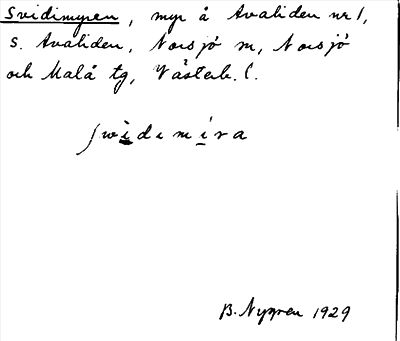 Svidimyren, myr å Avaliden nr 1,
S. Avaliden, Norsjö sn, Norsjö
och Malå tg, Västerb. l.
swidemira
B. Nygren 1929